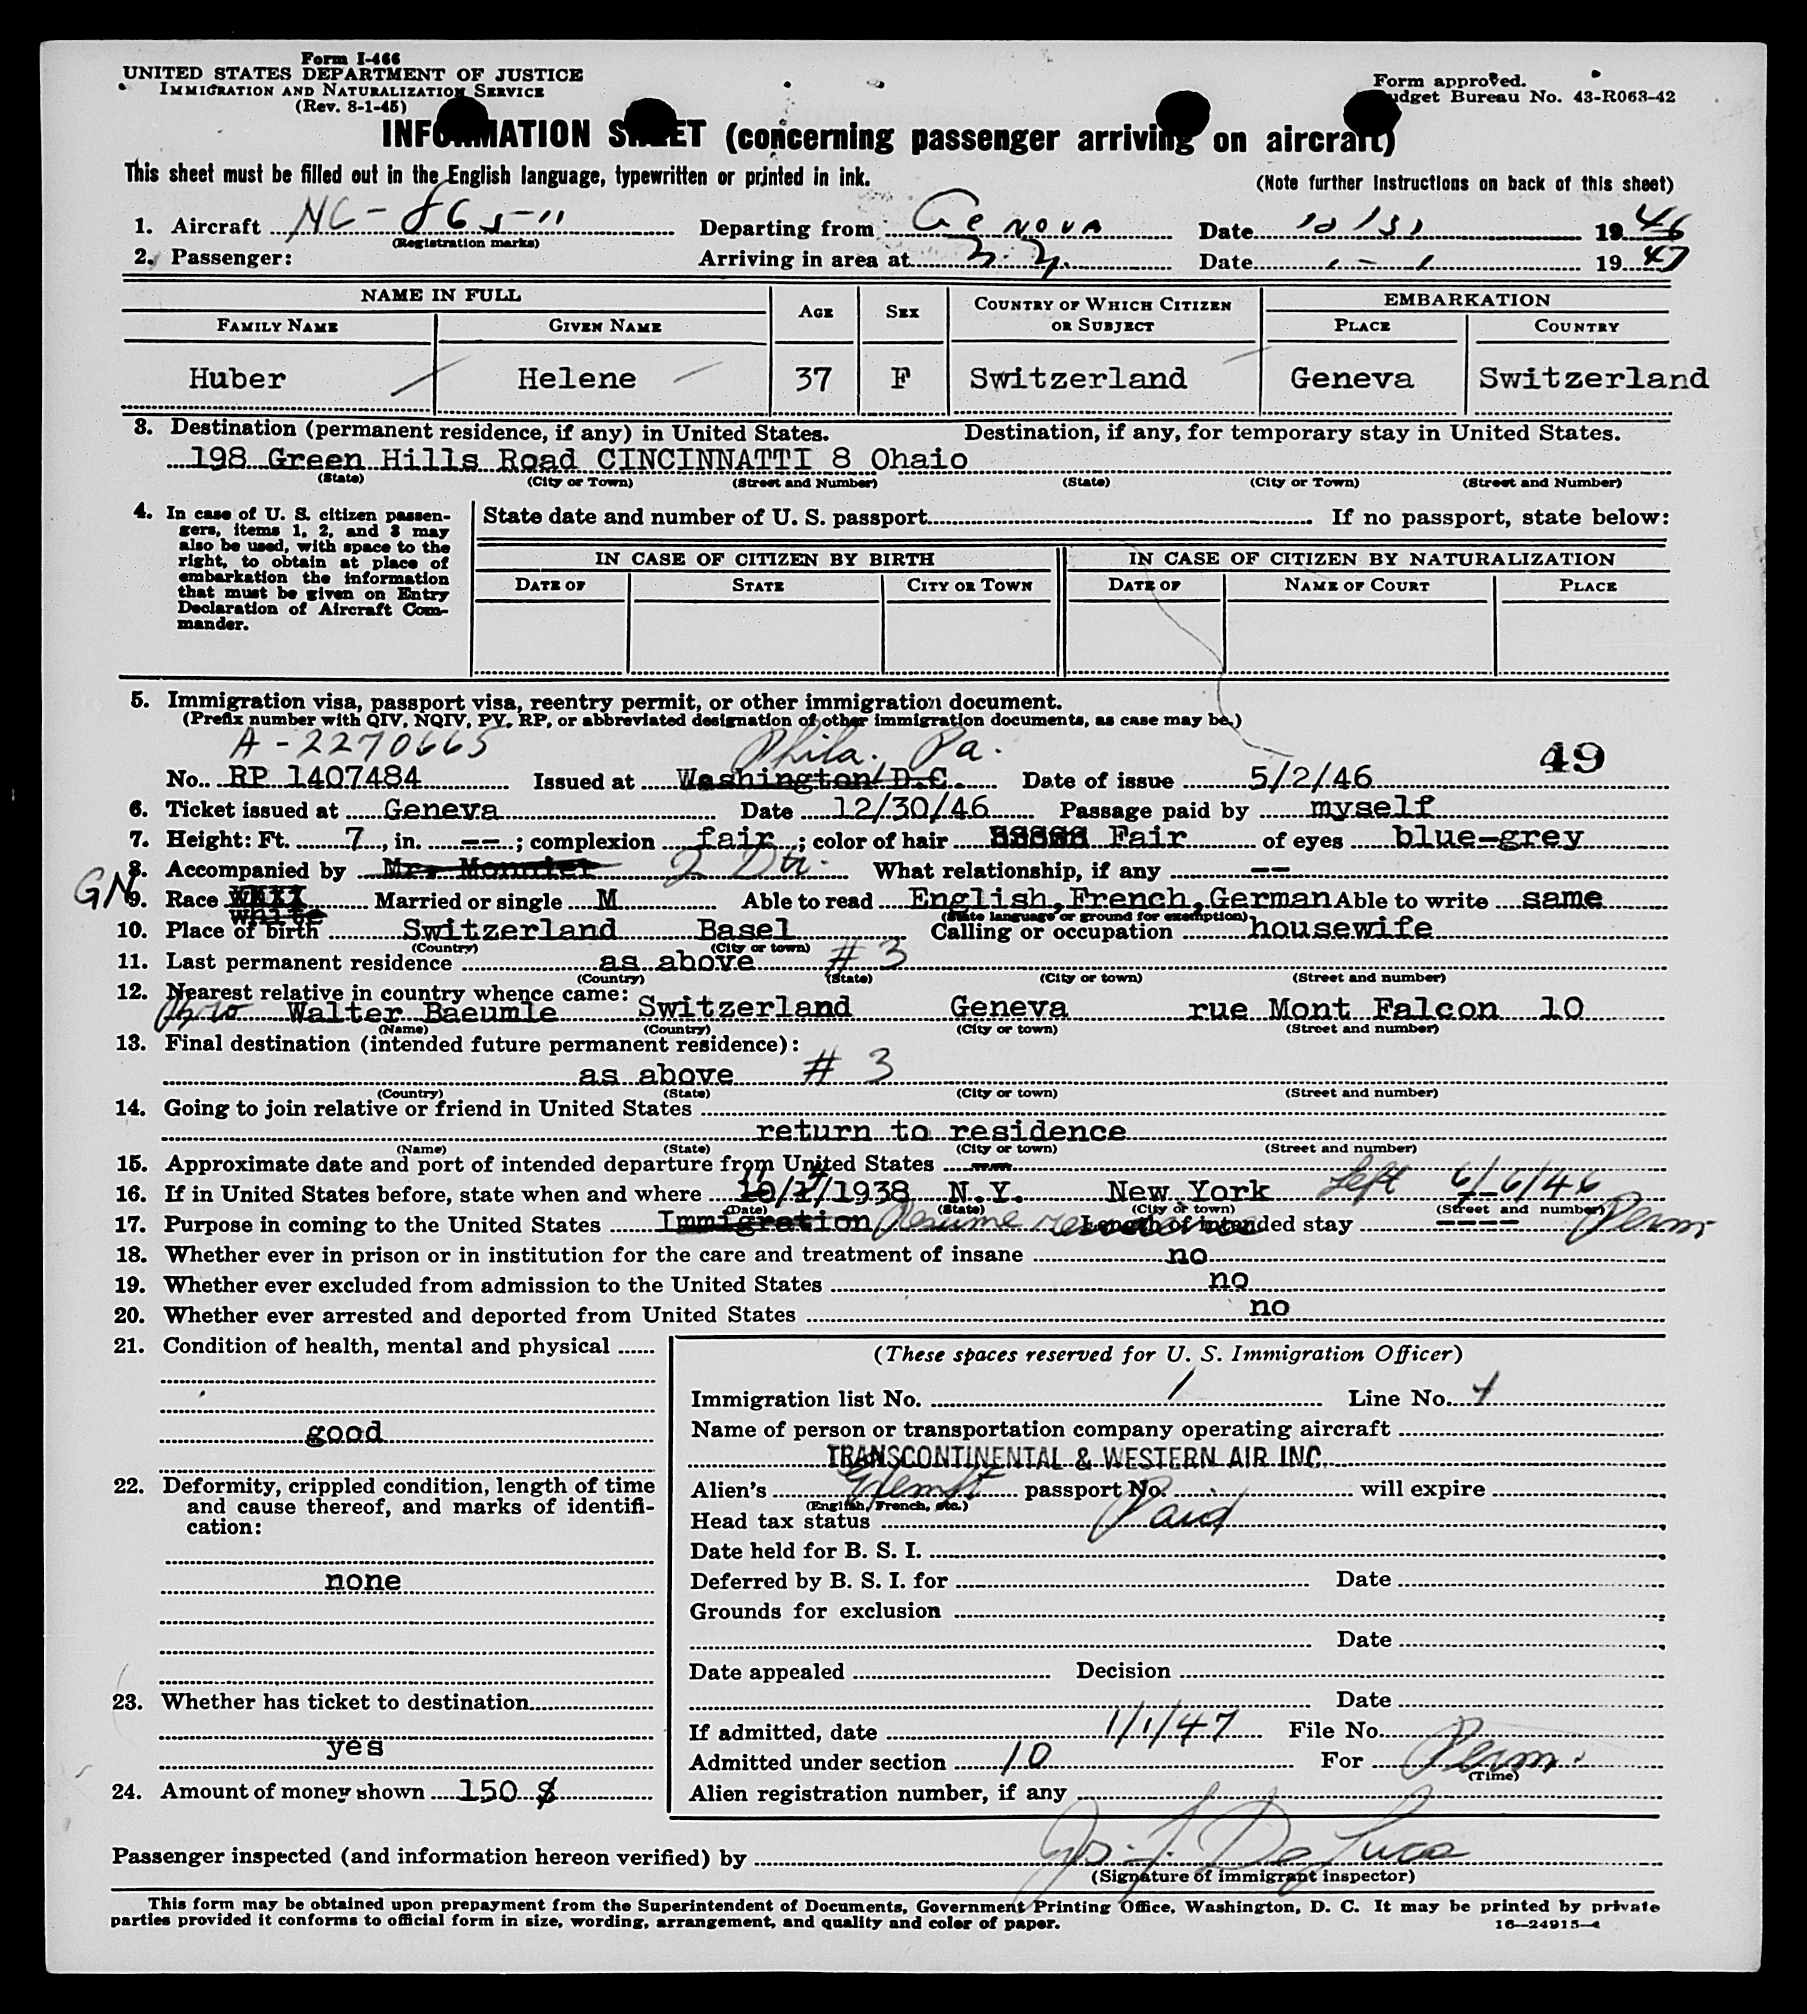 Form I-466
UNITED STATES DEPARTMENT OF JUSTICE
IMMIGRATION AND NATURALIZATION SERVICE
(Rev. 8-1-45)
Form approved.
Budget Bureau No. 43-R063-42
INFORMATION SHEET (concerning passenger arriving on aircraft)
This sheet must be filled out in the English language, typewritten or printed in ink.
(Note further instructions on back of this sheet)
1. Aircraft NC-86511 Departing from Genova Date 12/31 1946
(Registration marks)
2. Passenger: Arriving in area at N.Y. Date 1-1 1947
NAME IN FULL AGE SEX COUNTRY OF WHICH CITIZEN OR SUBJECT EMBARKATION
FAMILY NAME GIVEN NAME PLACE COUNTRY
Huber Helene 37 F Switzerland Geneva Switzerland
3. Destination (permanent residence, if any) in United States. Destination, if any, for temporary stay in United States.
198 Green Hills Road CINCINNATTI 8 Ohaio
(State) (City or Town) (Street and Number) (State) (City or Town) (Street and Number)
4. In case of U. S. citizen passengers, items 1, 2, and 3 may also be used, with space to the right, to obtain at place of embarkation the information that must be given on Entry Declaration of Aircraft Commander.
State date and number of U. S. passport If no passport, state below:
IN CASE OF CITIZEN BY BIRTH IN CASE OF CITIZEN BY NATURALIZATION
DATE OF STATE CITY OR TOWN DATE OF NAME OF COURT PLACE
5. Immigration visa, passport visa, reentry permit, or other immigration document.
(Prefix number with QIV, NQIV, PV, RP, or abbreviated designation of other immigration documents, as case may be.)
A-2270665 Phila. Pa. 49
No. RP 1407484 Issued at Washington D.C. Date of issue 5/2/46
6. Ticket issued at Geneva Date 12/30/46 Passage paid by myself
7. Height: Ft. 7, in. --; complexion fair; color of hair Fair of eyes blue-grey
8. Accompanied by Mr. Monnier 2 Dtr. What relationship, if any --
GN
9. Race white Married or single M Able to read English, French, German Able to write same
(State language or ground for exemption)
10. Place of birth Switzerland Basel Calling or occupation housewife
(Country) (City or town)
11. Last permanent residence as above # 3
(Country) (State) (City or town) (Street and number)
12. Nearest relative in country whence came:
Bro Walter Baeumle Switzerland Geneva rue Mont Falcon 10
(Name) (Country) (City or town) (Street and number)
13. Final destination (intended future permanent residence):
as above # 3
(Country) (State) (City or town) (Street and number)
14. Going to join relative or friend in United States
return to residence
(Name) (State) (City or town) (Street and number)
15. Approximate date and port of intended departure from United States --
16. If in United States before, state when and where /1938 N.Y. New York Left 6/6/46
(Date) (State) (City or town) (Street and number)
17. Purpose in coming to the United States Immigration Resume residence Length of intended stay ---- Perm
18. Whether ever in prison or in institution for the care and treatment of insane no
19. Whether ever excluded from admission to the United States no
20. Whether ever arrested and deported from United States no
21. Condition of health, mental and physical
good
22. Deformity, crippled condition, length of time and cause thereof, and marks of identification:
none
23. Whether has ticket to destination
yes
24. Amount of money shown 150 $
(These spaces reserved for U. S. Immigration Officer)
Immigration list No. 1 Line No. 4
Name of person or transportation company operating aircraft
TRANSCONTINENTAL & WESTERN AIR INC.
Alien's Exempt passport No. will expire
(English, French, etc.)
Head tax status Paid
Date held for B. S. I.
Deferred by B. S. I. for Date
Grounds for exclusion
Date
Date appealed Decision
Date
If admitted, date 1/1/47 File No.
Admitted under section 10 For Perm.
(Time)
Alien registration number, if any
Passenger inspected (and information hereon verified) by Jos. F. De Luca
(Signature of immigrant inspector)
This form may be obtained upon prepayment from the Superintendent of Documents, Government Printing Office, Washington, D. C. It may be printed by private
parties provided it conforms to official form in size, wording, arrangement, and quality and color of paper.
16-24915-4